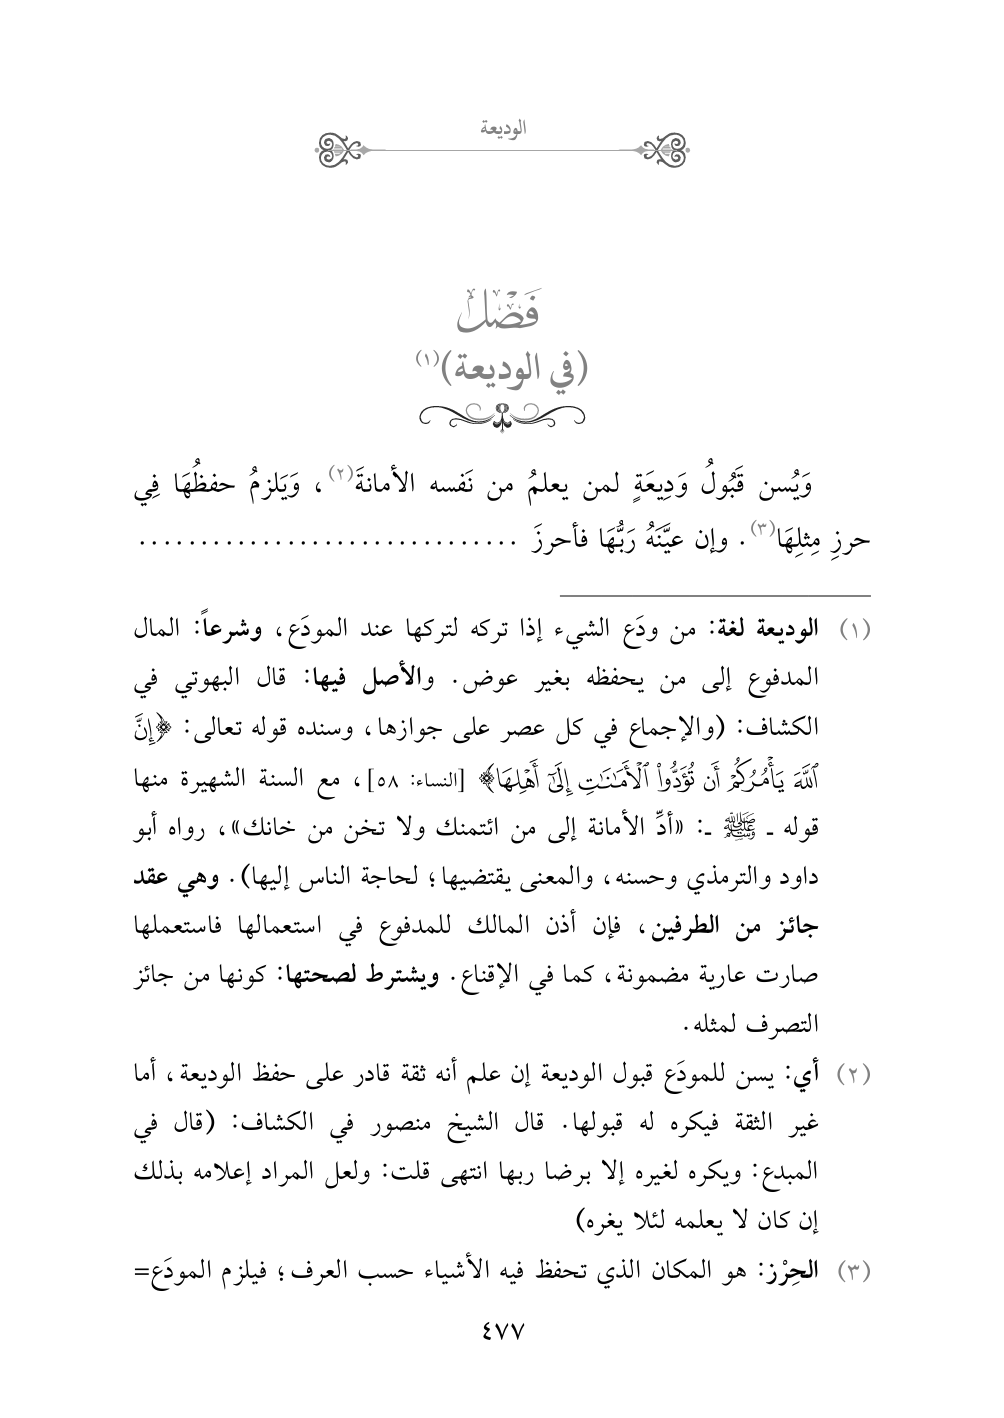 الوديعة
فَصْل
(في الوديعة)(١)
وَيُسن قَبُولُ وَدِيعَةٍ لمن يعلمُ من نَفسه الأمانةَ(٢)، وَيَلزمُ حفظُهَا فِي
حرزِ مِثلِهَا(٣). وإن عيَّنَهُ رَبُّهَا فأحرزَ ...............................
(١) الوديعة لغة: من ودَع الشيء إذا تركه لتركها عند المودَع، وشرعاً: المال
المدفوع إلى من يحفظه بغير عوض. والأصل فيها: قال البهوتي في
الكشاف: (والإجماع في كل عصر على جوازها، وسنده قوله تعالى: ﴿إِنَّ
ٱللَّهَ يَأۡمُرُكُمۡ أَن تُؤَدُّواْ ٱلۡأَمَٰنَٰتِ إِلَىٰٓ أَهۡلِهَا﴾ [النساء: ٥٨]، مع السنة الشهيرة منها
قوله ـ ﷺ ـ: «أدِّ الأمانة إلى من ائتمنك ولا تخن من خانك»، رواه أبو
داود والترمذي وحسنه، والمعنى يقتضيها؛ لحاجة الناس إليها). وهي عقد
جائز من الطرفين، فإن أذن المالك للمدفوع في استعمالها فاستعملها
صارت عارية مضمونة، كما في الإقناع. ويشترط لصحتها: كونها من جائز
التصرف لمثله.
(٢) أي: يسن للمودَع قبول الوديعة إن علم أنه ثقة قادر على حفظ الوديعة، أما
غير الثقة فيكره له قبولها. قال الشيخ منصور في الكشاف: (قال في
المبدع: ويكره لغيره إلا برضا ربها انتهى قلت: ولعل المراد إعلامه بذلك
إن كان لا يعلمه لئلا يغره)
(٣) الحِرْز: هو المكان الذي تحفظ فيه الأشياء حسب العرف؛ فيلزم المودَع=
٤٧٧